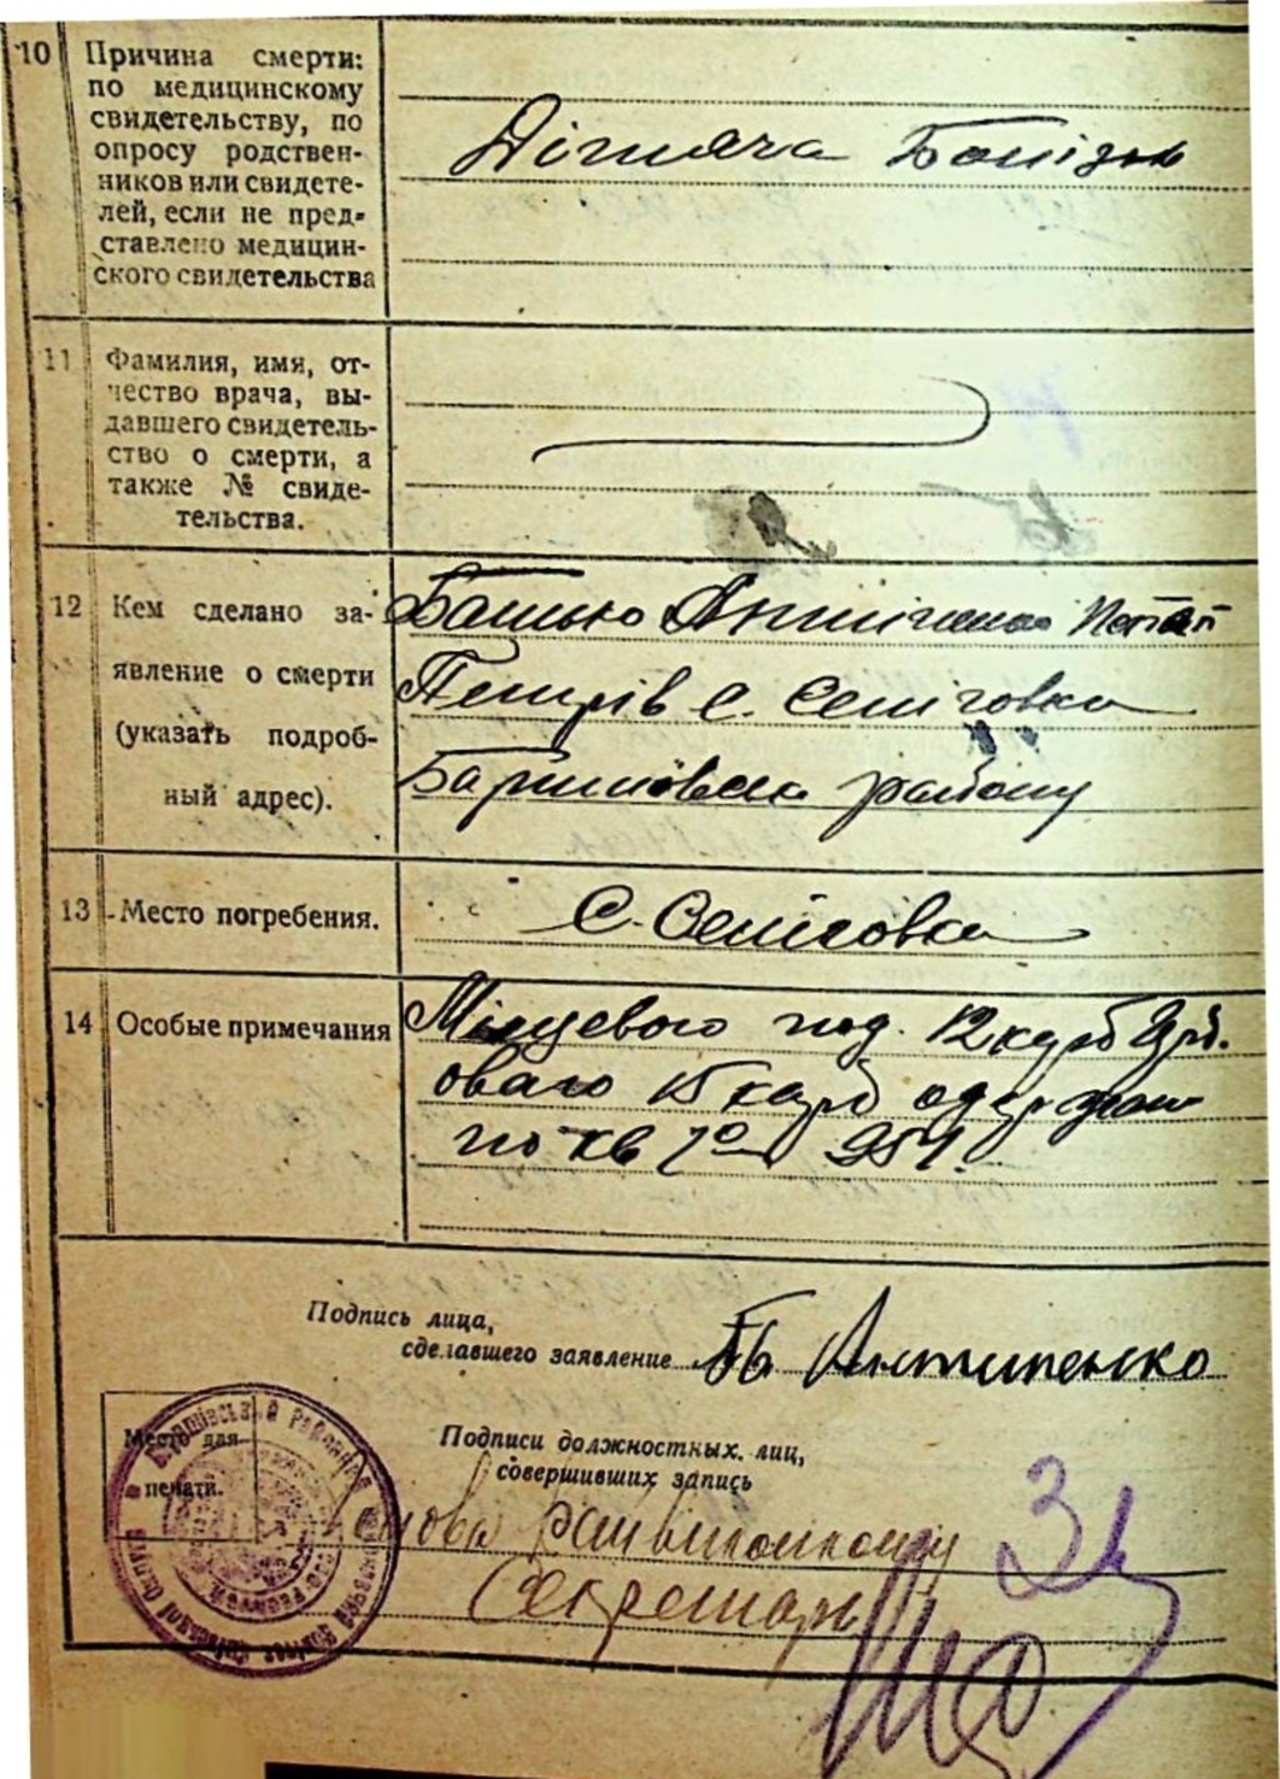 10 Причина смерти:
по медицинскому
свидетельству, по
опросу родствен-
ников или свидете-
лей, если не пред-
ставлено медицин-
ского свидетельства
Дітяча
11 Фамилия, имя, от-
чество врача, вы-
давшего свидетель-
ство о смерти, а
также № свиде-
тельства.
12 Кем сделано за-
явление о смерти
(указать подроб-
ный адрес).
Батько Потап
Петрів с. Селіговка
району
13 Место погребения.
С. Селіговка
14 Особые примечания
Місцевого под. 12 карб
15 карб одержано
по кв
Подпись лица,
сделавшего заявление Антипенко
Место для
печати.
Подписи должностных лиц,
совершивших запись
Голова райвиконкому
Секретарь